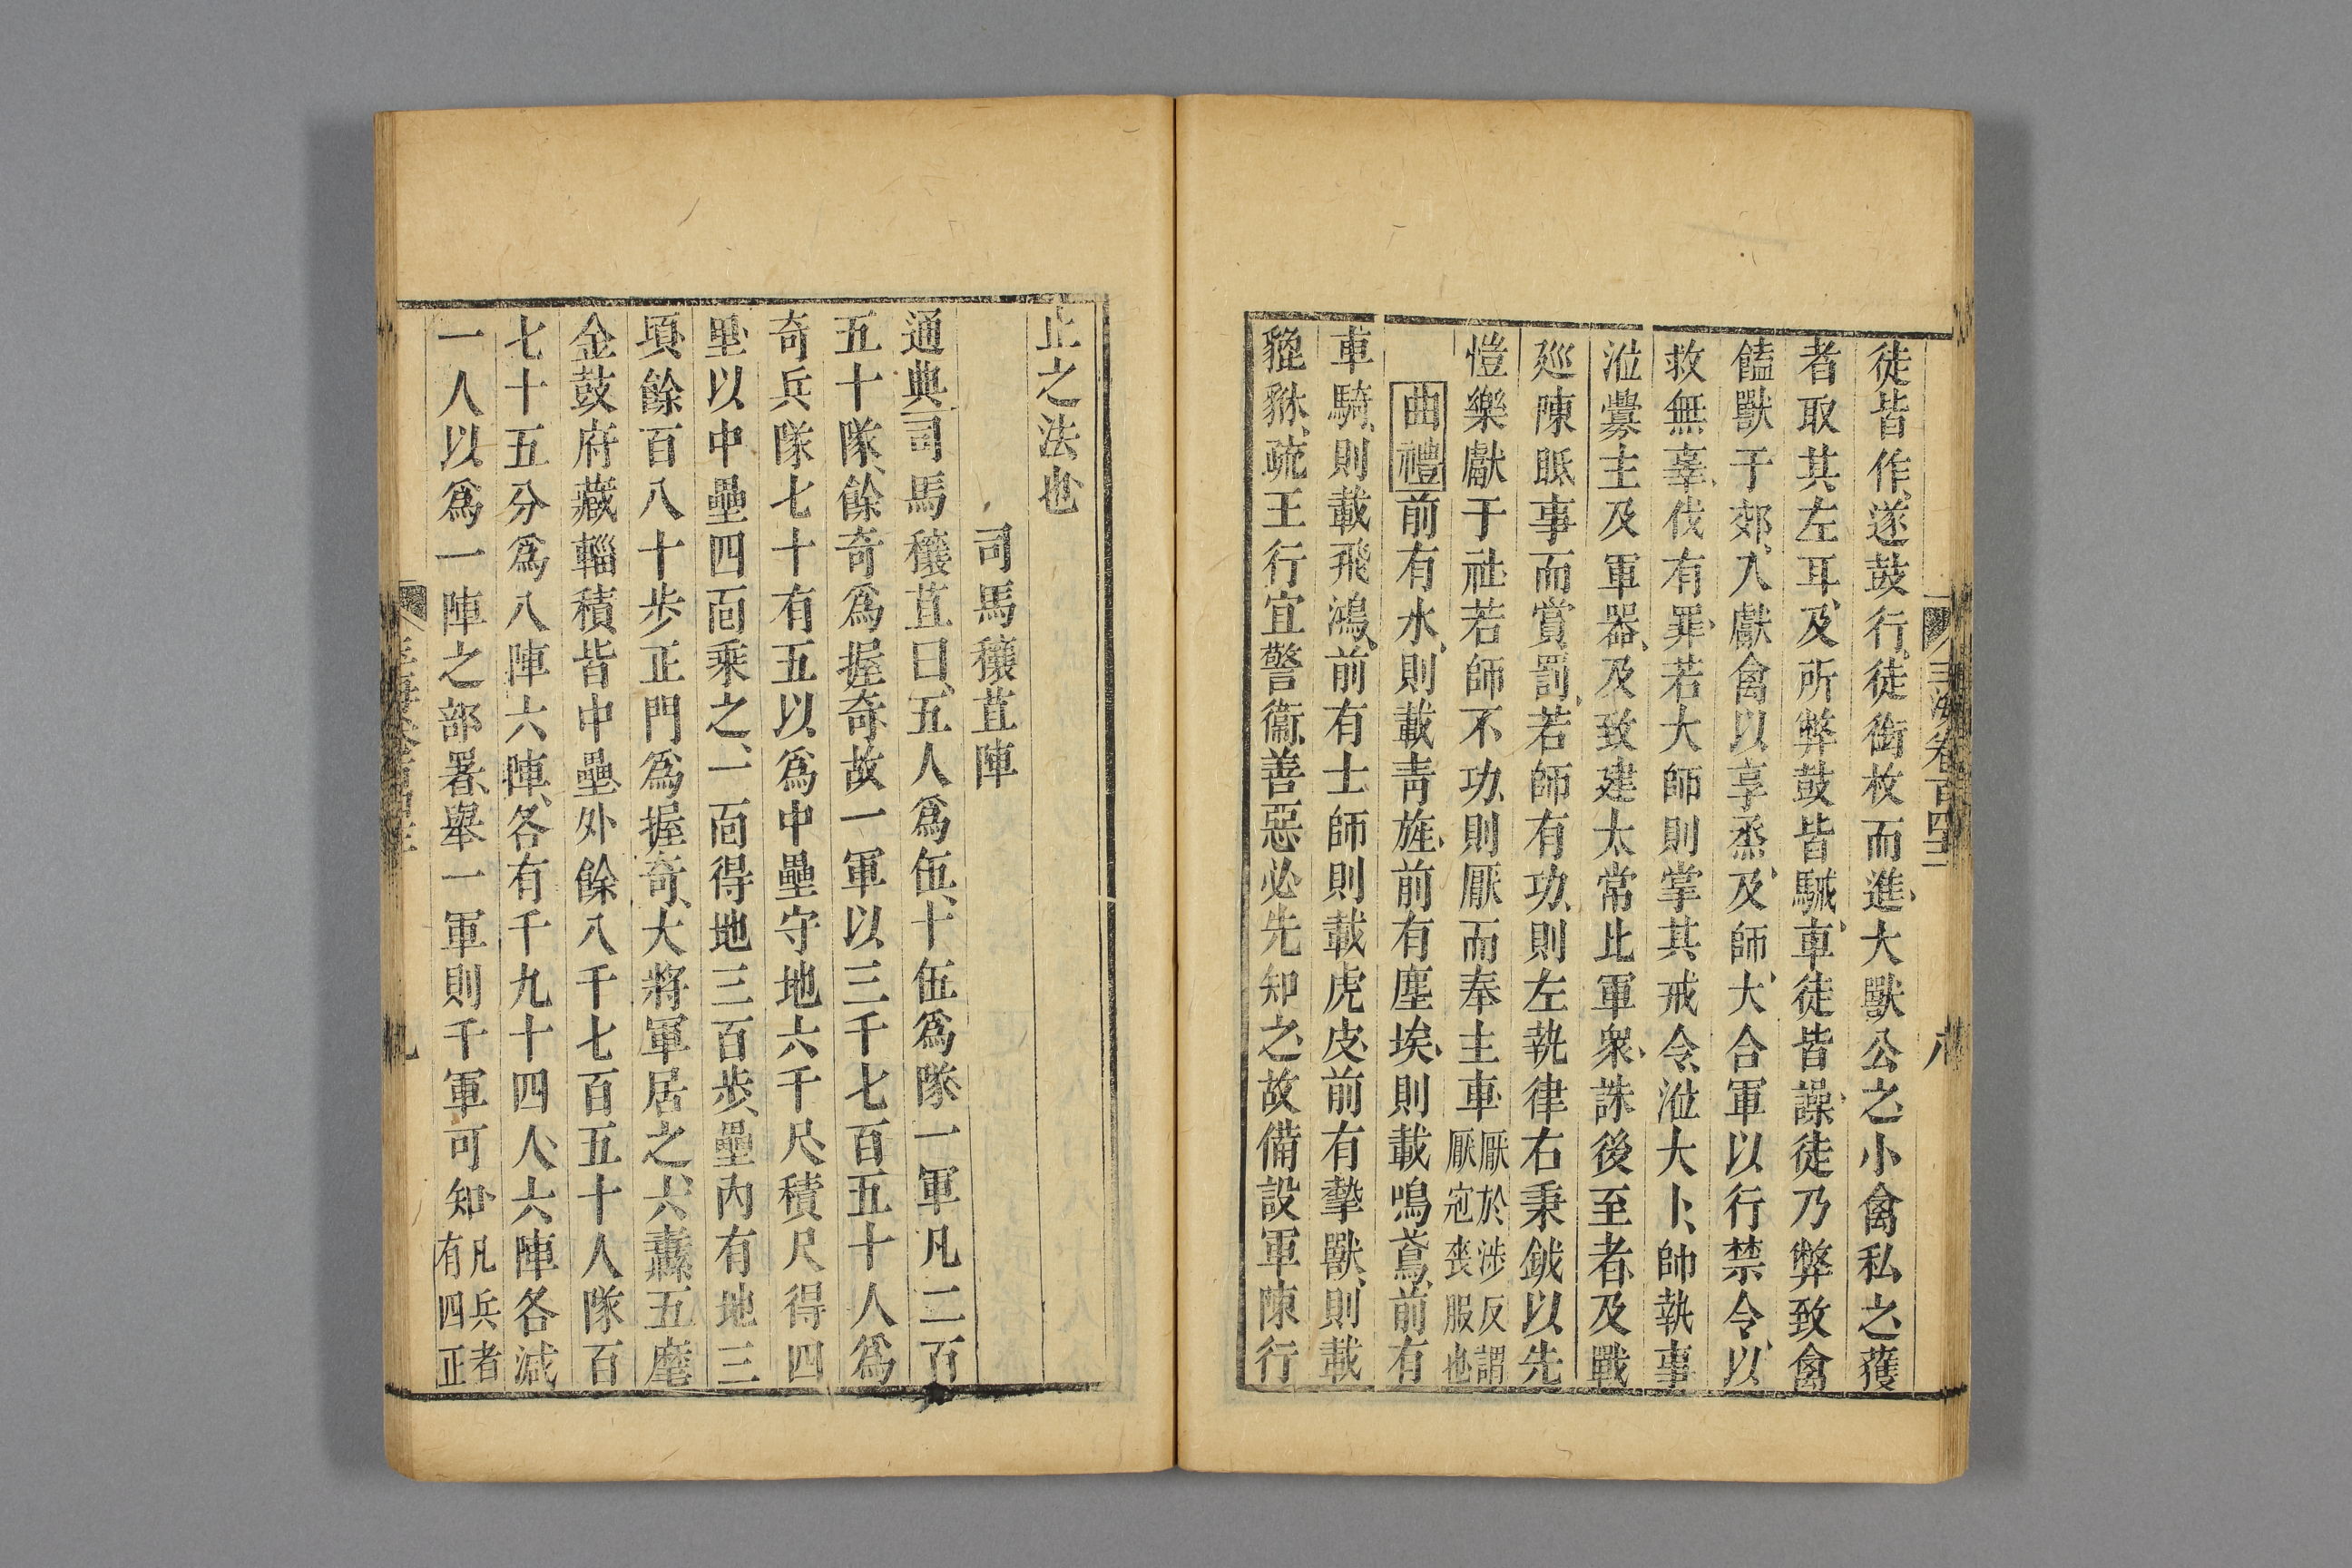 玉海卷百四三 八
徒皆作遂鼓行徒銜枚而進大獸公之小禽私之獲
者取其左耳及所弊鼓皆駴車徒皆譟徒乃弊致禽
饁獸于郊入獻禽以享烝及師大合軍以行禁令以
救無辜伐有罪若大師則掌其戒令涖大卜帥執事
涖釁主及軍器及致建太常比軍衆誅後至者及戰
廵陳眡事而賞罰若師有功則左執律右秉鉞以先
愷樂獻于社若師不功則厭而奉主車厭於涉反謂厭冠喪服也
曲禮前有水則載青旌前有塵埃則載鳴鳶前有
車騎則載飛鴻前有士師則載虎皮前有摯獸則載
貔貅疏王行宜警衞善惡必先知之故備設軍陳行
止之法也
司馬穰苴陣
通典司馬穰苴曰五人爲伍十伍爲隊一軍凡二百
五十隊餘奇爲握奇故一軍以三千七百五十人爲
奇兵隊七十有五以爲中壘守地六千尺積尺得四
里以中壘四面乘之一面得地三百步壘內有地三
頃餘百八十步正門爲握奇大將軍居之六纛五麾
金鼓府藏輜積皆中壘外餘八千七百五十人隊百
七十五分爲八陣六陣各有千九十四人六陣各減
一人以爲一陣之部署舉一軍則千軍可知凡兵者有四正
九